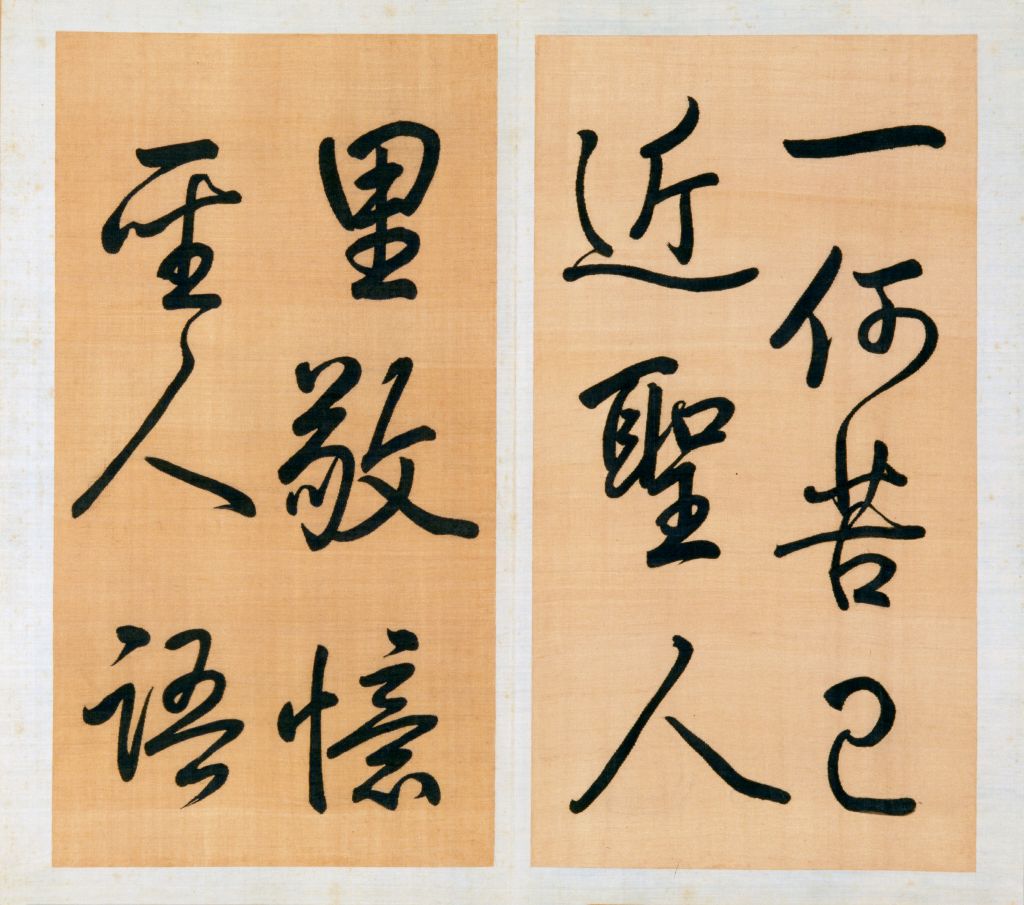 一何苦已
近聖人
里敬憶
聖人語